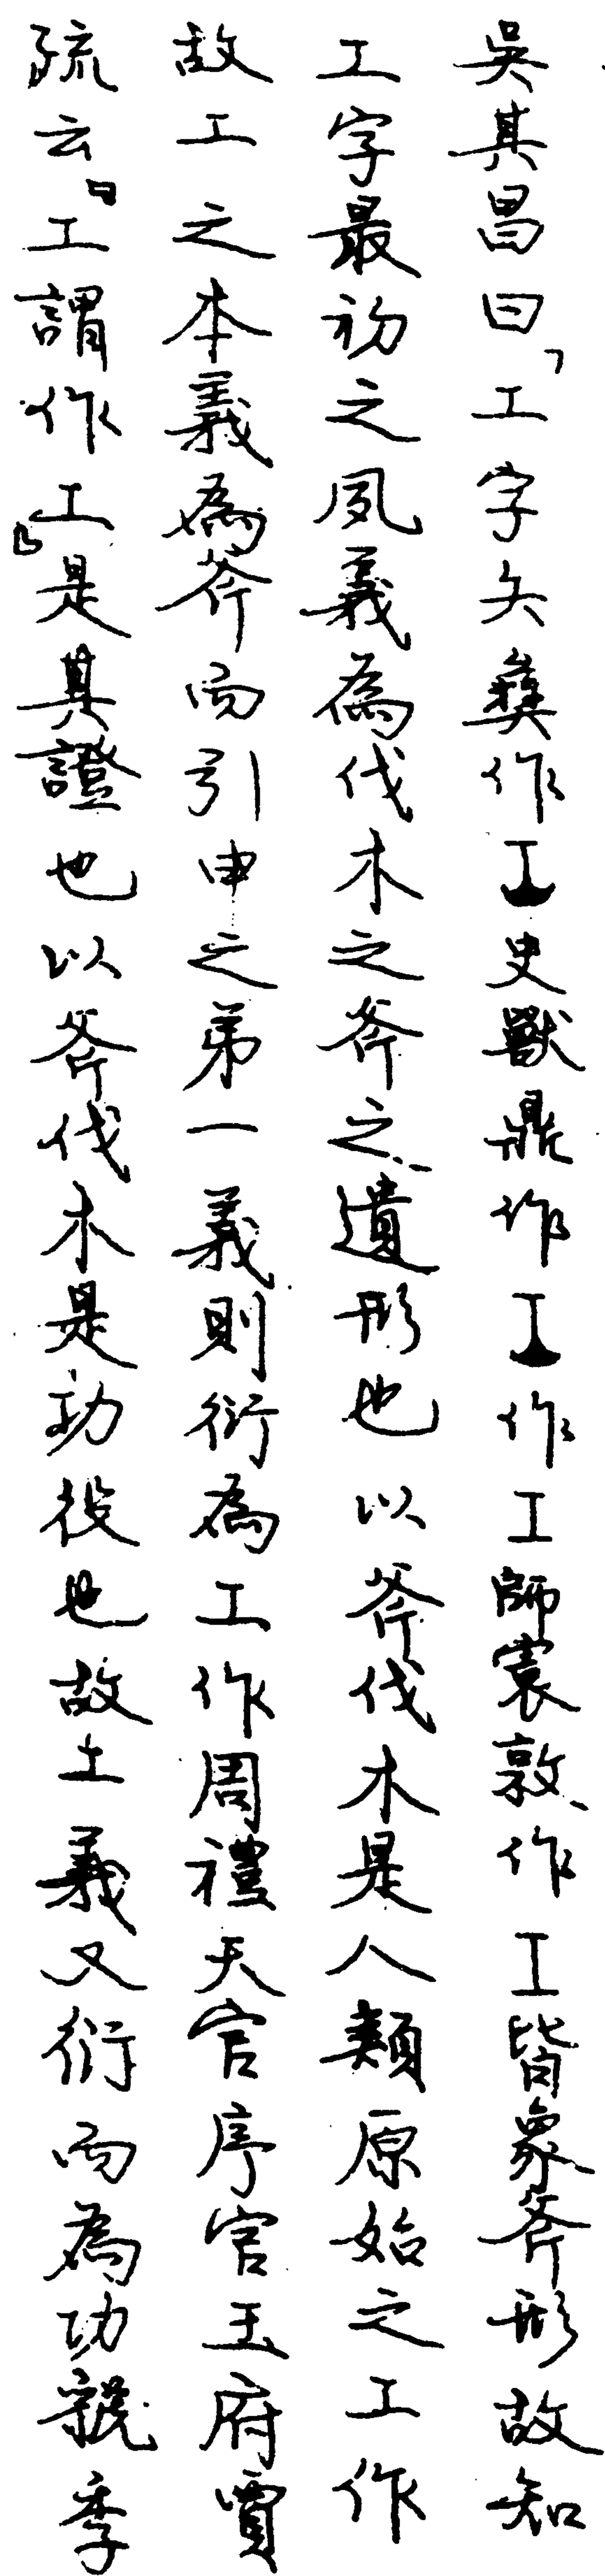 吳其昌曰「工字矢彝作工史獸鼎作工作工師㝨敦作工皆象斧形故知
工字最初之夙義為伐木之斧之遺形也以斧伐木是人類原始之工作
故工之本義為斧而引申之弟一義則衍為工作周禮天官序官玉府賈
疏云『工謂作工』是其證也以斧伐木是功役也故工義又衍而為功虢季